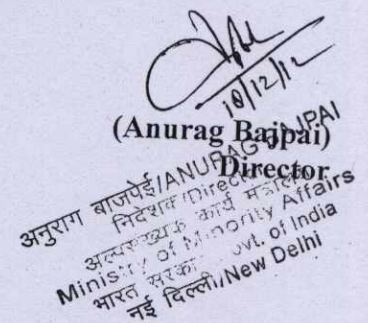 10/12/12
(Anurag Bajpai)
Director
अनुराग बाजपेई/ANURAG BAJPAI
निदेशक/Director
अल्पसंख्यक कार्य मंत्रालय
Ministry of Minority Affairs
भारत सरकार/Govt. of India
नई दिल्ली/New Delhi